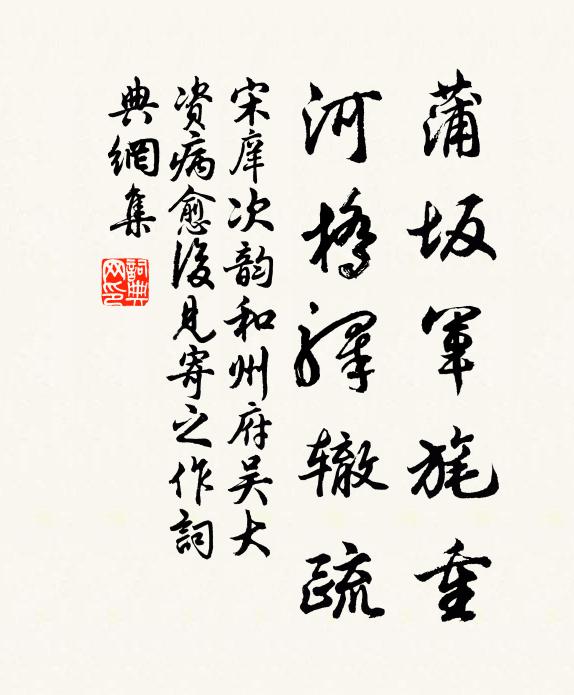 蒲坂軍旄重
河橋驛辙疏
宋庠次韵和州府吴大
資病愈後見寄之作詞
典網集
詞典网印